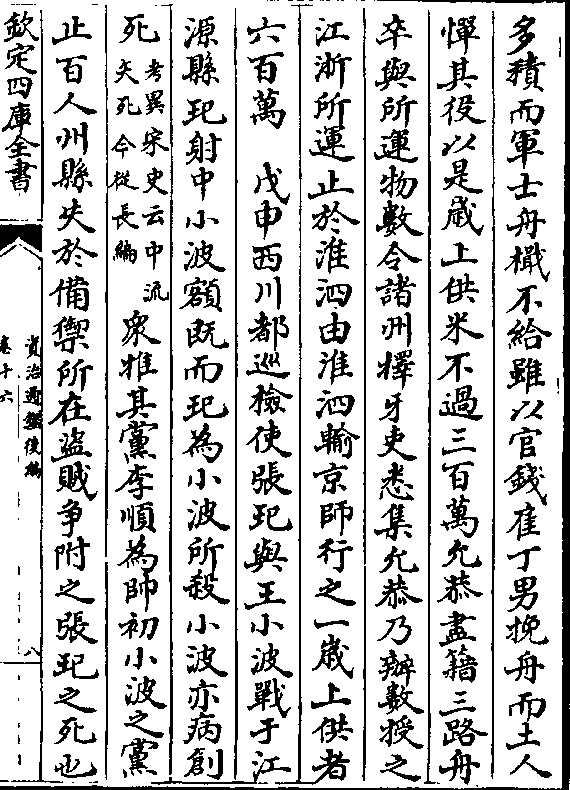 多積而軍士舟檝不給雖以官錢雇丁男挽舟而土人
憚其役以是歲上供米不過三百萬允恭盡籍三路舟
卒與所運物數令諸州擇牙吏悉集允恭乃辦數授之
江浙所運止於淮泗由淮泗輸京師行之一歲上供者
六百萬　戊申西川都巡檢使張玘與王小波戰于江
源縣玘射中小波額既而玘為小波所殺小波亦病創
死考異宋史云中流矢死今從長編衆推其黨李順為帥初小波之黨
止百人州縣失於備禦所在盜賊争附之張玘之死也
欽定四庫全書
資治通鑑後編
卷十六
八